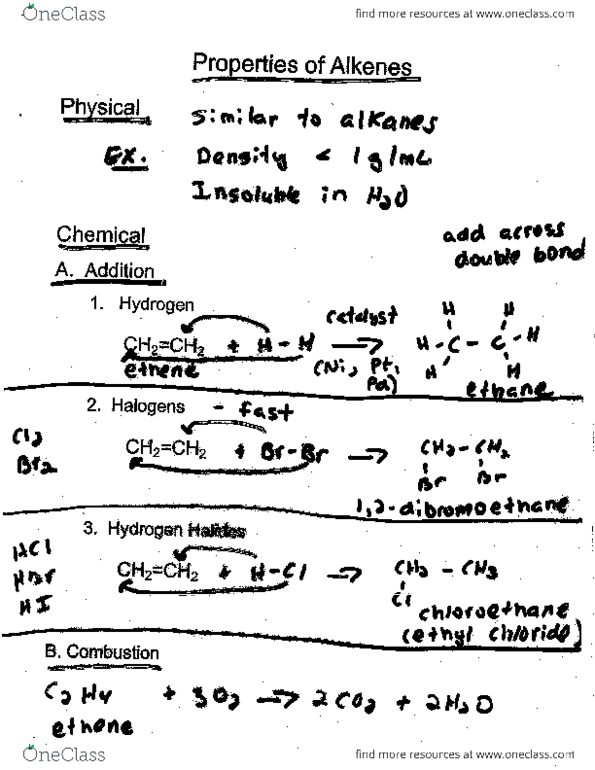 OneClass
find more resources at www.oneclass.com
Properties of Alkenes
Physical similar to alkanes
EX. Density < 1g/mL
Insoluble in H2O
Chemical
add across
double bond
A. Addition
1. Hydrogen
CH2=CH2 + H-H catalyst → H H
(Ni, Pt, Pd) H-C-C-H
H H
ethene ethane
2. Halogens - fast
Cl2
Br2
CH2=CH2 + Br-Br → CH2-CH2
Br Br
1,2-dibromoethane
3. Hydrogen Halides
HCl
HBr
HI
CH2=CH2 + H-Cl → CH2-CH3
Cl
chloroethane
(ethyl chloride)
B. Combustion
C2H4 + 3O2 → 2CO2 + 2H2O
ethene
OneClass
find more resources at www.oneclass.com